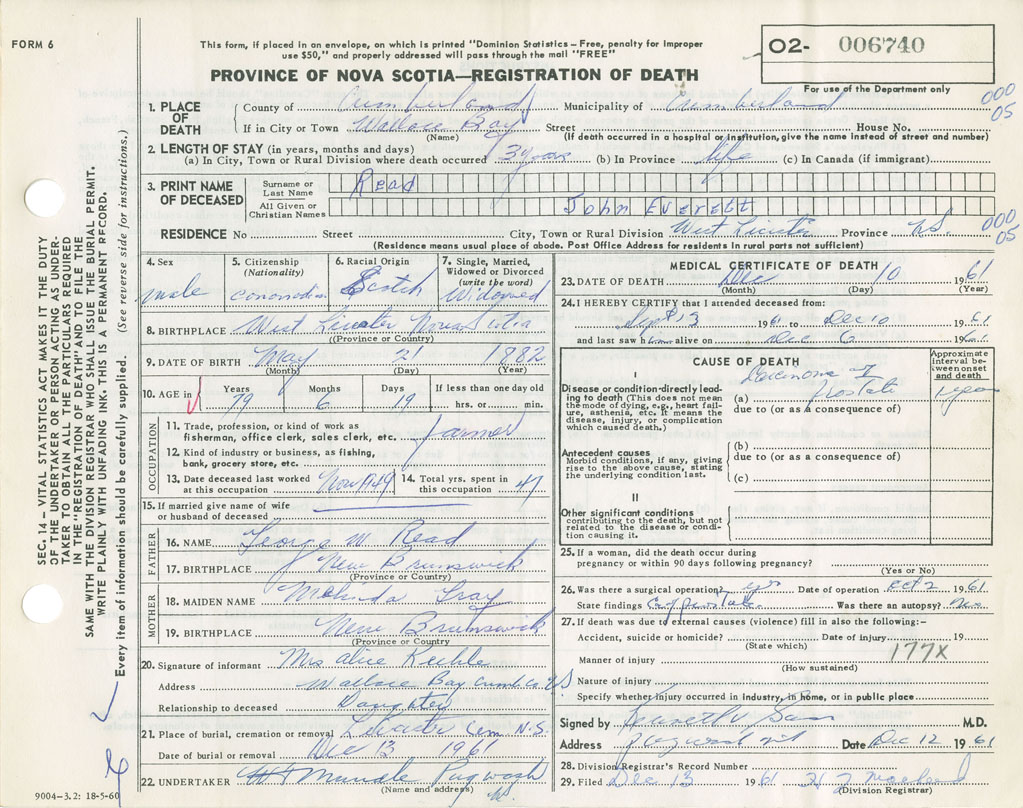 FORM 6
This form, if placed in an envelope, on which is printed "Dominion Statistics – Free, penalty for improper
use $50," and properly addressed will pass through the mail "FREE"
02- 006740
PROVINCE OF NOVA SCOTIA—REGISTRATION OF DEATH
For use of the Department only
000
05
1. PLACE OF DEATH
County of Cumberland Municipality of Cumberland
If in City or Town Wallace Bay Street House No.
(Name) (If death occurred in a hospital or institution, give the name instead of street and number)
2. LENGTH OF STAY (in years, months and days)
(a) In City, Town or Rural Division where death occurred 3 years (b) In Province life (c) In Canada (if immigrant)
3. PRINT NAME OF DECEASED
Surname or Last Name Read
All Given or Christian Names John Everett
RESIDENCE No Street City, Town or Rural Division West Leicester Province N.S.
000
05
(Residence means usual place of abode. Post Office Address for residents in rural parts not sufficient)
4. Sex
male
5. Citizenship
(Nationality)
Canadian
6. Racial Origin
Scotch
7. Single, Married,
Widowed or Divorced
(write the word)
Widowed
8. BIRTHPLACE West Leicester Nova Scotia
((Province or Country)
9. DATE OF BIRTH May 21 1882
(Month) (Day) (Year)
10. AGE in
Years Months Days If less than one day old
79 6 19 hrs. or min.
OCCUPATION
11. Trade, profession, or kind of work as
fisherman, office clerk, sales clerk, etc. farmer
12. Kind of industry or business, as fishing,
bank, grocery store, etc.
13. Date deceased last worked
at this occupation Nov 1949
14. Total yrs. spent in
this occupation 47
15. If married give name of wife
or husband of deceased
FATHER
16. NAME George W Read
17. BIRTHPLACE New Brunswick
(Province or Country)
MOTHER
18. MAIDEN NAME Melinda Gray
19. BIRTHPLACE New Brunswick
(Province or Country)
20. Signature of informant Mrs Alice
Address Wallace Bay Cumb. Co. N S
Relationship to deceased Daughter
21. Place of burial, cremation or removal Leicester Cem N.S.
Date of burial or removal Dec 13 1961
22. UNDERTAKER Pugwash
(Name and address) N.S.
MEDICAL CERTIFICATE OF DEATH
23. DATE OF DEATH Dec 10 1961
(Month) (Day) (Year)
24. I HEREBY CERTIFY that I attended deceased from:
Sept 13 1961 to Dec 10 1961
and last saw him alive on Dec 6 1961
CAUSE OF DEATH
Approximate interval between onset and death
I
Disease or condition directly leading to death (This does not mean
the mode of dying, e.g., heart failure, asthenia, etc. It means the
disease, injury, or complication
which caused death.)
(a) Carcinoma of Prostate 1 year
due to (or as a consequence of)
Antecedent causes
Morbid conditions, if any, giving
rise to the above cause, stating
the underlying condition last.
(b)
due to (or as a consequence of)
(c)
II
Other significant conditions
contributing to the death, but not
related to the disease or condition causing it.
25. If a woman, did the death occur during
pregnancy or within 90 days following pregnancy?
(Yes or No)
26. Was there a surgical operation? yes Date of operation Oct 2 1961
State findings Ca prostate Was there an autopsy? No
27. If death was due to external causes (violence) fill in also the following:-
Accident, suicide or homicide? Date of injury 19
(State which)
177X
Manner of injury
(How sustained)
Nature of injury
Specify whether injury occurred in industry, in home, or in public place
Signed by M.D.
Address Date Dec 12 1961
28. Division Registrar's Record Number
29. Filed Dec 13 1961
(Division Registrar)
SEC. 14 – VITAL STATISTICS ACT MAKES IT THE DUTY
OF THE UNDERTAKER OR PERSON ACTING AS UNDERTAKER TO OBTAIN ALL THE PARTICULARS REQUIRED
IN THE "REGISTRATION OF DEATH" AND TO FILE THE
SAME WITH THE DIVISION REGISTRAR WHO SHALL ISSUE THE BURIAL PERMIT.
WRITE PLAINLY WITH UNFADING INK. THIS IS A PERMANENT RECORD.
Every item of information should be carefully supplied. (See reverse side for instructions.)
9004-3.2: 18-5-60